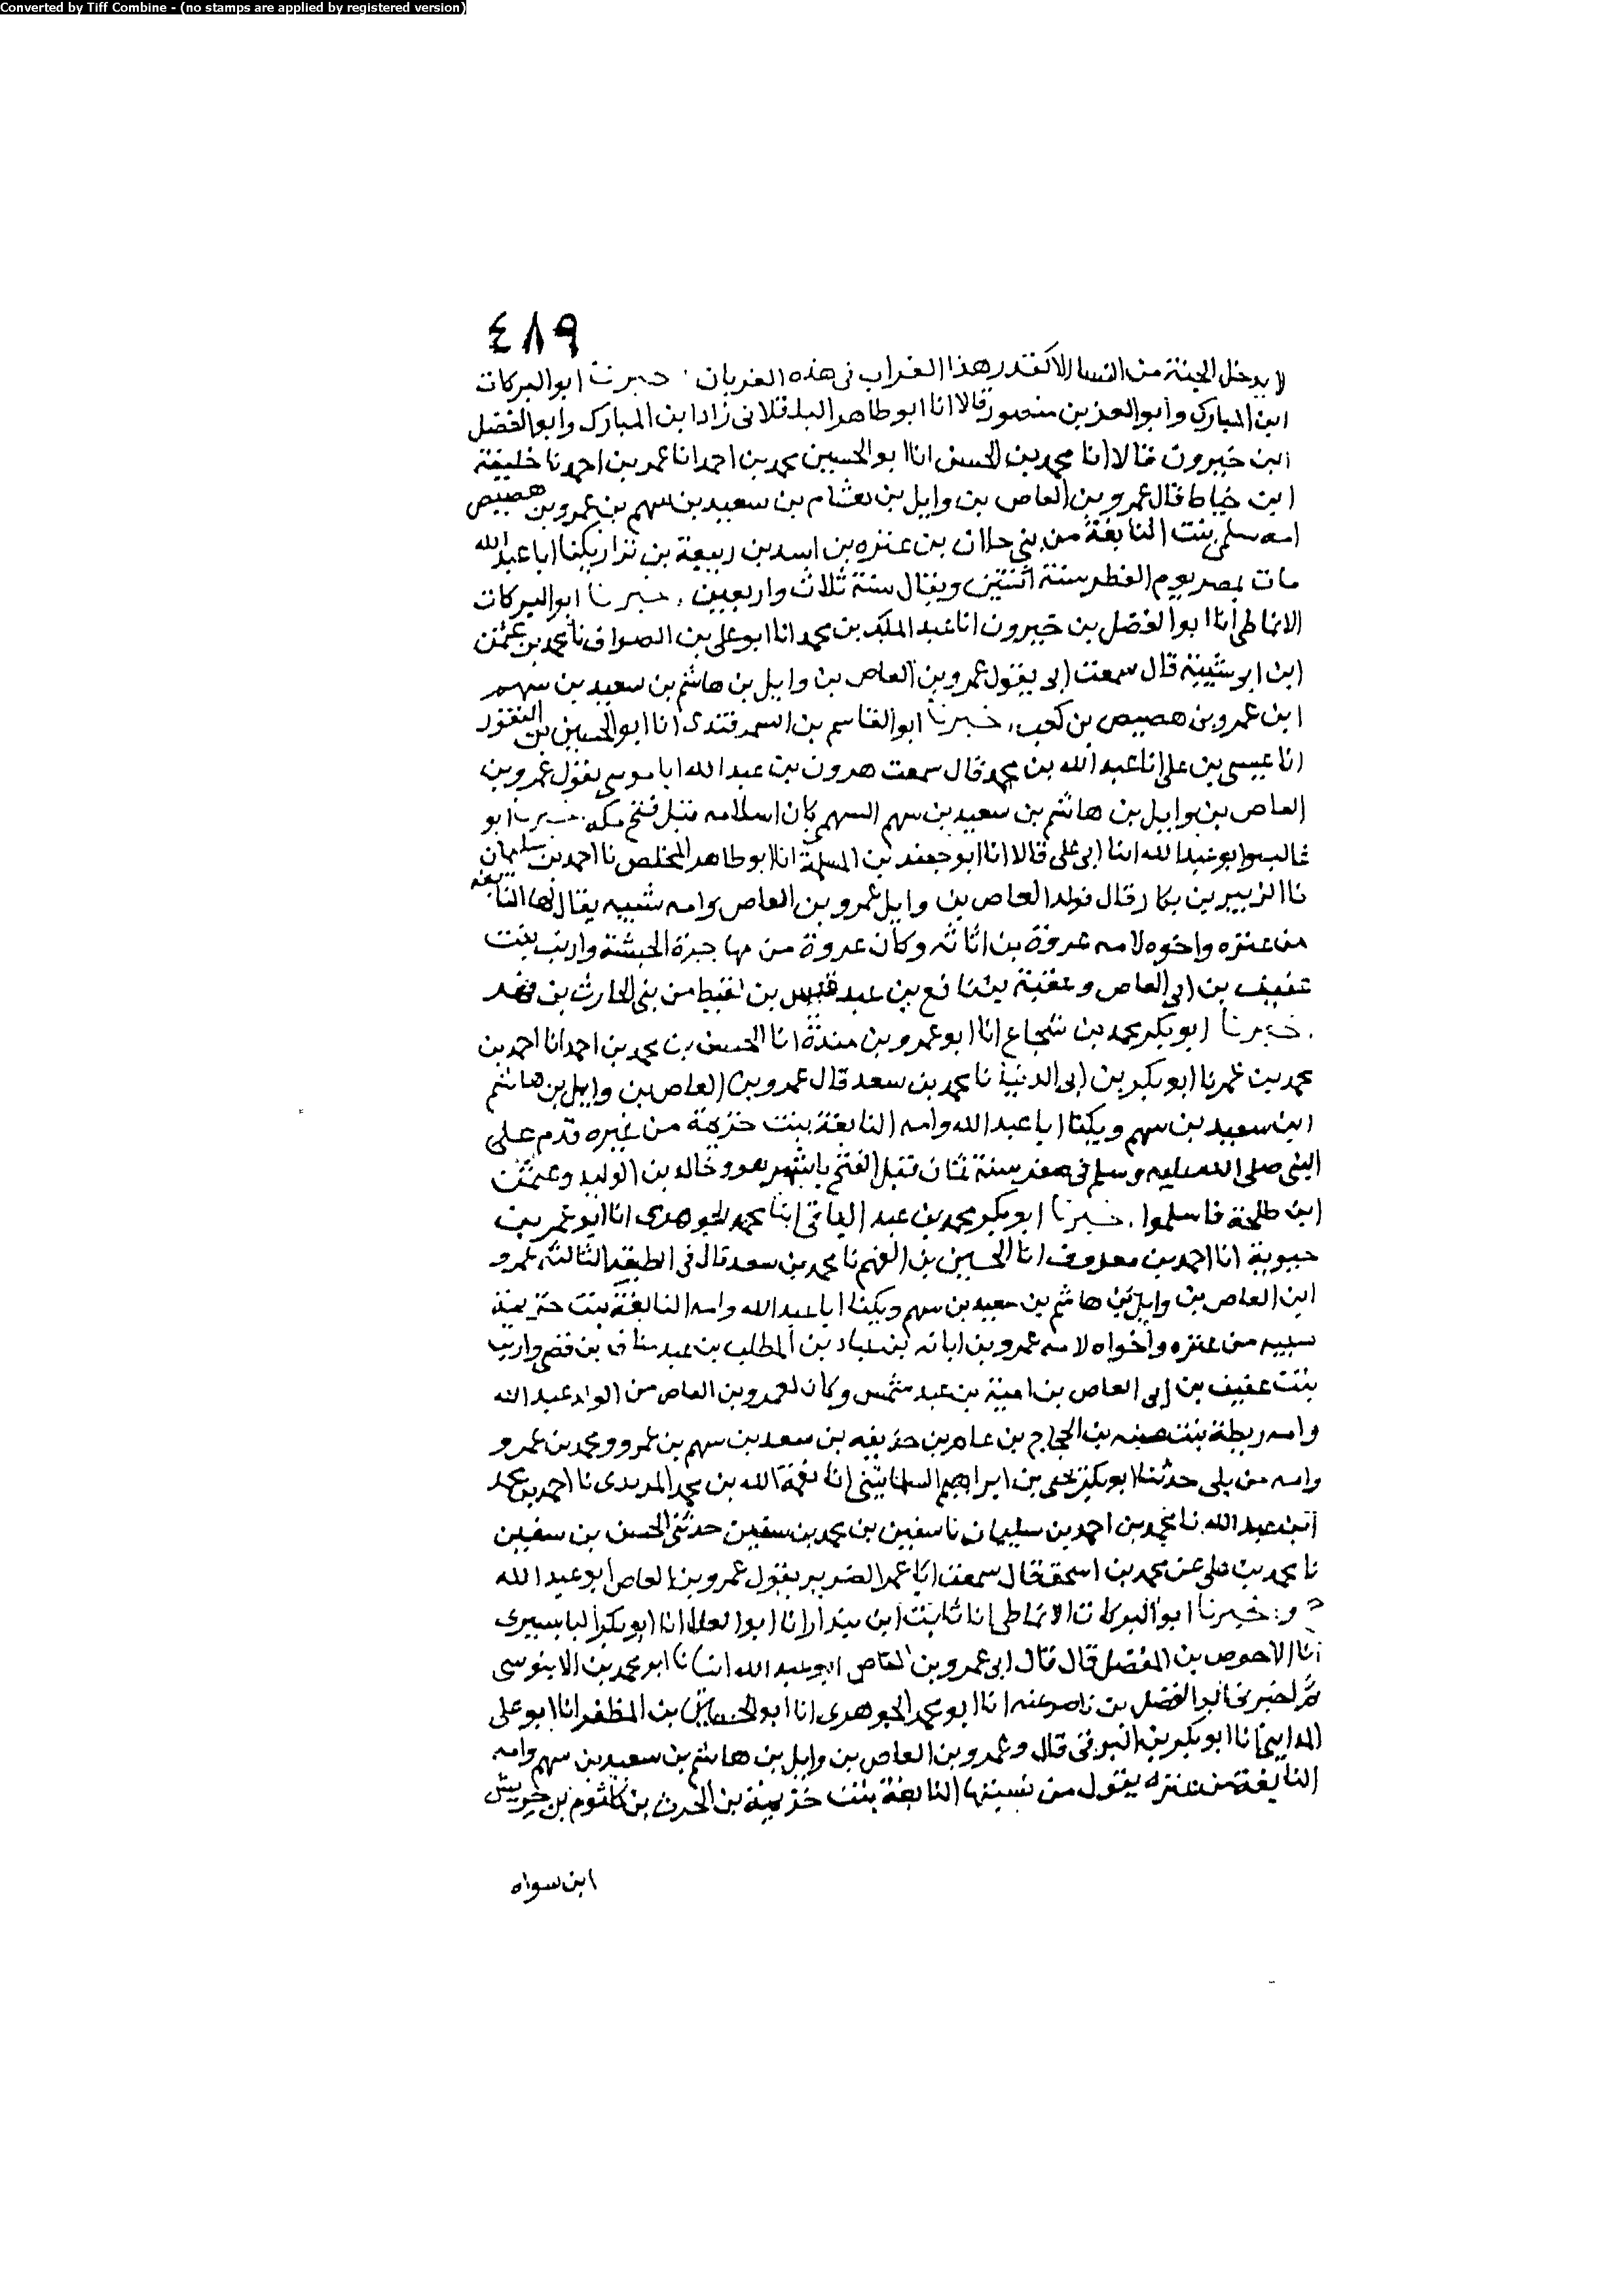 Converted by Tiff Combine - (no stamps are applied by registered version)
٤٨٩
لا يدخل الجنة من النسا الا كقدر هذا الغراب في هذه الغربان . خبرنا ابو البركات
ابن المبارك وابو العز بن منصور قالا انا ابو طاهر الباقلاني زاد ابن المبارك وابو الفضل
ابن خيرون قالا انا محمد بن الحسن انا ابو الحسين محمد بن احمد انا عمر بن احمد نا خليفة
ابن خياط قال عمرو بن العاص بن وايل بن هشام بن سعيد بن سهم بن عمرو بن هصيص
امه سلمى بنت النابغة من بني جلان بن عنزه بن اسد بن ربيعة بن نزار يكنا ابا عبد الله
مات بمصر يوم الفطر سنة اثنتين ويقال سنة ثلاث واربعين . خبرنا ابو البركات
الانماطي انا ابو الفضل بن خيرون انا عبد الملك بن محمد انا ابو علي بن الصواف نا محمد بن عثمن
ابن ابو شيبة قال سمعت ابي يقول عمرو بن العاص بن وايل بن هاشم بن سعيد بن سهم
ابن عمرو بن هصيص بن كعب . خبرنا ابو القاسم بن السمرقندي انا ابو الحسين بن النقور
انا عيسى بن علي انا عبد الله بن محمد قال سمعت هرون بن عبد الله ابا موسى يقول عمرو بن
العاص بن وايل بن هاشم بن سعيد بن سهم السهمي كان اسلامه قبل فتح مكه . خبرنا ابو
غالب وابو عبد الله ابنا ابي علي قالا انا ابو جعفر بن المسلمة انا ابو طاهر المخلص نا احمد بن سليمان
نا الزبير بن بكار قال فولد العاص بن وايل عمرو بن العاص وامه سبيه يقال لها النابغه
من عنزه واخوه لامه عروة بن اثاثه وكان عروة من مهاجرة الحبشة وارنب بنت
عفيف بن ابي العاص وعقبة بن نافع بن عبد قيس بن لقيط من بني الحارث بن فهر
. خبرنا ابو بكر محمد بن شجاع انا ابو عمرو بن مندة انا الحسن بن محمد بن احمد انا احمد بن
محمد بن عمر نا ابو بكر بن ابي الدنيا نا محمد بن سعد قال عمرو بن العاص بن وايل بن هاشم
ابن سعيد بن سهم ويكنا ابا عبد الله وامه النابغة بنت خزيمة من عنزه قدم على
النبي صلى الله عليه وسلم في صفر سنة ثمان قبل الفتح باشهر هو وخالد بن الوليد وعثمن
ابن طلحة فاسلموا . خبرنا ابو بكر محمد بن عبد الباقي ابنا محمد الجوهري انا ابو عمر بن
حيوية انا احمد بن معروف انا الحسين بن الفهم نا محمد بن سعد قال في الطبقه الثالثه عمرو
ابن العاص بن وايل بن هاشم بن سعيد بن سهم ويكنا ابا عبد الله وامه النابغة بنت خزيمة
سبيه من عنزه واخواه لامه عمرو بن اباثه بن عباد بن المطلب بن عبد مناف بن قصي وارنب
بنت عفيف بن ابي العاص بن امية بن عبد شمس وكان لعمرو بن العاص من الولد عبد الله
وامه ريطة بنت منبه بن الحجاج بن عامر بن حذيفه بن سعد بن سهم بن عمرو ومحمد بن عمرو
وامه من بلي حدثنا ابو بكر يحيى بن ابراهيم السلماسي انا نعمة الله بن محمد المرندي نا احمد بن محمد
ابن عبد الله نا محمد بن احمد بن سليمان نا سفين بن محمد بن سفين حدثني الحسن بن سفين
نا محمد بن علي عن محمد بن اسحق قال سمعت ابا عمر الضرير يقول عمرو بن العاص ابو عبد الله
خبرنا ابو البركات الانماطي انا ثابت ابن بندار انا ابو العلا انا ابو بكر البابسيري
انا الاحوص بن المفضل قال قال ابي عمرو بن العاص ابو عبد الله انبانا ابو محمد بن الابنوسي
ثم اخبرني ابو الفضل بن ناصر عنه انا ابو محمد الجوهري انا ابو الحسين بن المظفر انا ابو علي
المدايني انا ابو بكر بن البرقي قال وعمرو بن العاص بن وايل بن هاشم بن سعيد بن سهم وامه
النابغة من عنزه يقول من نسبتها النابغة بنت خزيمة بن الحرث بن كلثوم بن حريش
ابن سواه